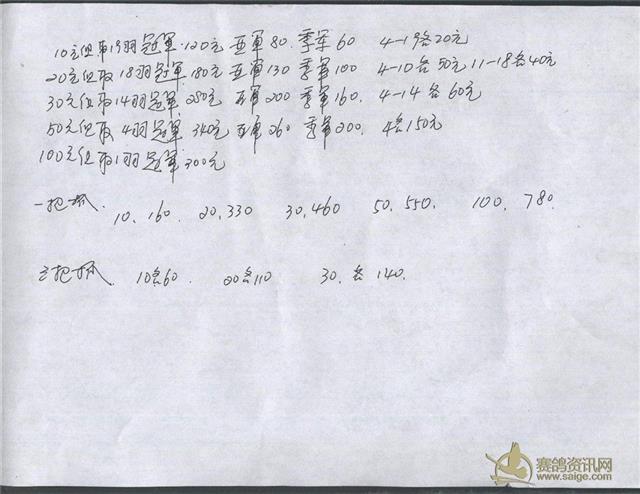 10元组取19羽冠軍120元 亚軍80 季军60 4-19名20元
20元组取18羽冠軍180元 亚軍130 季軍100 4-10名50元 11-18名40元
30元组取14羽冠軍280元 亚軍200 季軍160. 4-14名60元
50元组取4羽冠軍340元 亚軍260 季軍200. 4名150元
100元组取1羽冠軍300元
一把抓. 10.160. 20.330 30.460 50.550. 100.780
三把抓. 10名60. 20名110 30.名140.
赛鸽资讯网
www.saige.com